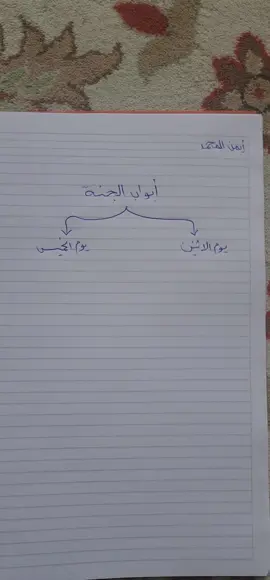 أيمن
أبواب الجنة
يوم الاثنين
يوم الخميس